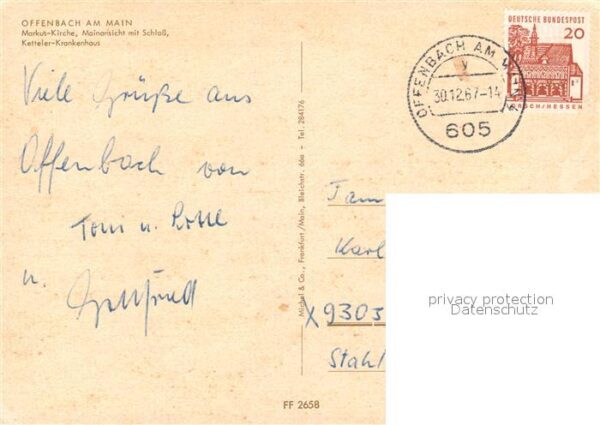 OFFENBACH AM MAIN
Markus-Kirche, Mainansicht mit Schloß,
Ketteler-Krankenhaus
Viele Grüße aus
Offenbach von
Toni u. Lotte
u.
Michel & Co., Frankfurt/Main, Bleichstr. 66a - Tel. 284176
FF 2658
DEUTSCHE BUNDESPOST
20
LORSCH/HESSEN
OFFENBACH AM MAIN
y
30.12.67-14
605
Fam
Karl
X9303
Stahl
privacy protection
Datenschutz